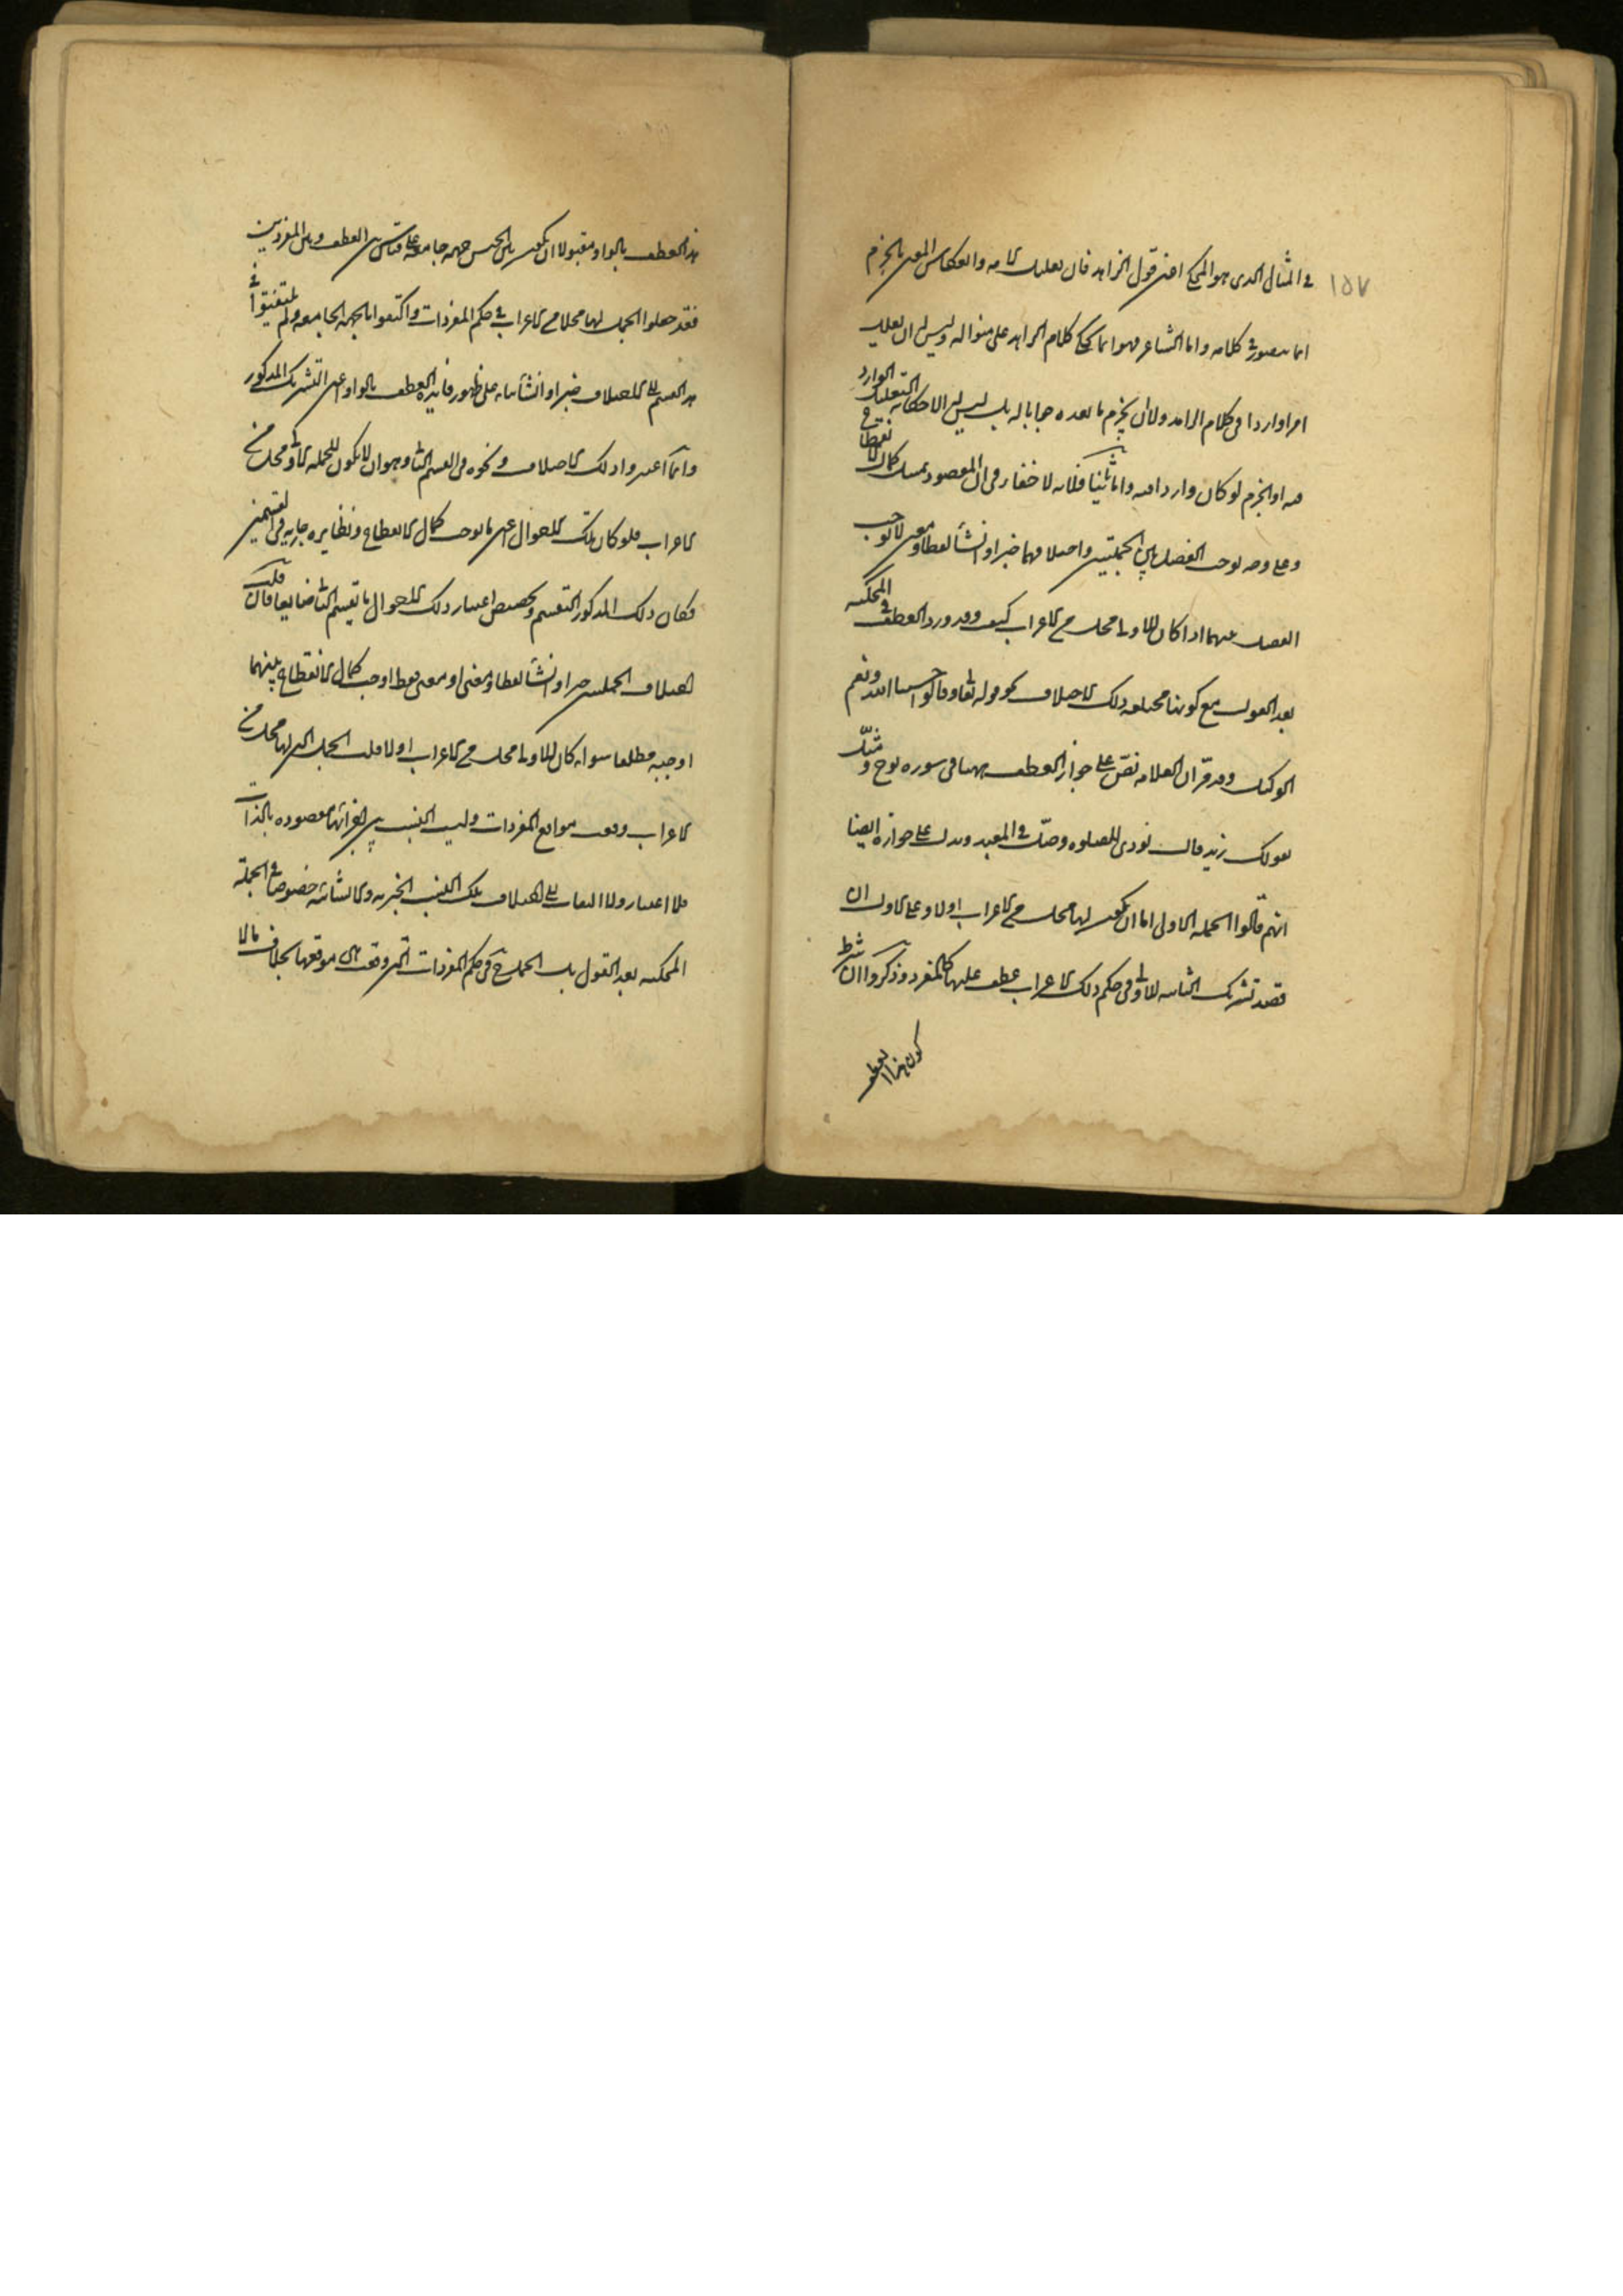 ١٥٧
في المثال الذي هو المحكي اعني قول الزاهد فان تعليل كلامه وانعكاس المعنى بالجزم
انما يتصور في كلامه واما الشاعر فهو انما يحكي كلام الزاهد على منواله وليس له ان يعلل
امرا واردا في كلام الزاهد ولا ان يجزم ما بعده جوابا له بل ليس له الا حكاية التعليل الوارد
فيه او الجزم لو كان واردا فيه واما ثانيا فلانه لا خفاء في ان المقصود تمثيل كمال الانقطاع
وعلى وجه يوجب الفصل بين الجملتين واختلافهما خبرا وانشاء لفظا ومعنى لا يوجب
الفصل بينهما اذا كان للاولى محل من الاعراب كيف وقد ورد العطف في المحكية
بعد القول مع كونها مختلفة ذلك الاختلاف نحو قوله تعالى وقالوا حسبنا الله ونعم
الوكيل وقد قرر ان العلامة نص على جواز العطف ههنا في سورة نوح ومثل
بقولك زيد قال نودي للصلوة وصل في المعبد ويدل على جوازه ايضا
انهم قالوا الجملة الاولى اما ان يكون لها محل من الاعراب اولا وعلى الاول ان
قصد تشريك الثانية للاولى في حكم ذلك الاعراب عطف عليها كالمفرد وذكروا ان شرط
كون هذا العطف
هذا العطف بالواو مقبولا ان يكون بين الجملتين جهة جامعة على قياس العطف بين المفردين
فقد جعلوا الجمل لها محل من الاعراب في حكم المفردات واكتفوا بالجهة الجامعة ولم يلتفتوا في
هذا القسم الى الاختلاف خبرا وانشاء بناء على ظهور فائدة العطف بالواو اعني التشريك المذكور
وانما اعتبروا ذلك الاختلاف ونحوه في القسم الثاني وهو ان لا يكون للجملة الاولى محل من
الاعراب فلو كان تلك الاحوال اعني ما يوجب كمال الانقطاع ونظايره جارية في القسمين
لكان ذلك المذكور التقسيم وتخصيص اعتبار ذلك الاحوال بالقسم الثاني ضايعا فان قلت
اختلاف الجملتين خبرا وانشاء لفظا ومعنى او معنى فقط اوجب كمال الانقطاع بينهما
اوجبه مطلقا سواء كان للاولى محل من الاعراب اولا قلت الجمل التي لها محل من
الاعراب وقعت مواقع المفردات وليست النسب بين اجزائها مقصودة بالذات
فلا اعتبار ولا التفات الى اختلاف تلك النسب الخبرية والانشائية خصوصا في الجملة
المحكية بعد القول بل الجمل ح في حكم المفردات التي وقعت هي موقعها بخلاف ما لا